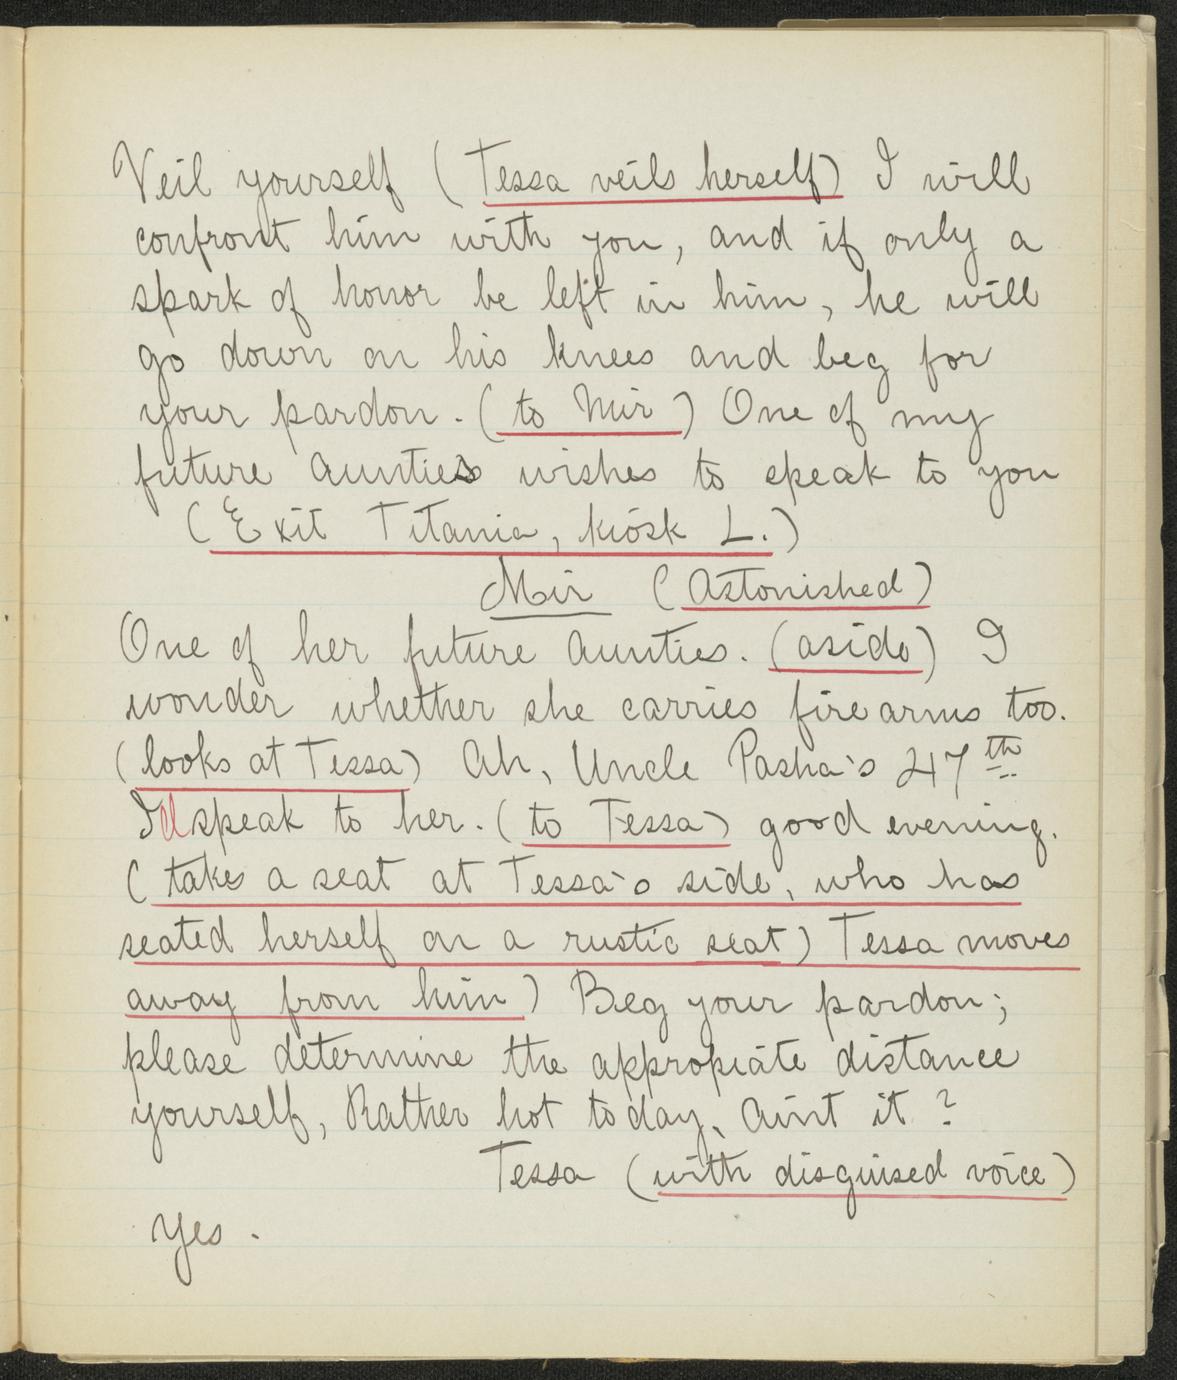 Veil yourself (Tessa veils herself) I will
confront him with you, and if only a
spark of honor be left in him, he will
go down on his knees and beg for
your pardon. (to Mir) One of my
future aunties wishes to speak to you
(Exit Titania, kiosk L.)
Mir (Astonished)
One of her future aunties. (aside) I
wonder whether she carries firearms too.
(looks at Tessa) Ah, Uncle Pasha's 47th
I'll speak to her. (to Tessa) good evening.
(takes a seat at Tessa's side, who has
seated herself on a rustic seat) Tessa moves
away from him) Beg your pardon;
please determine the appropiate distance
yourself, Rather hot today, aint it?
Tessa (with disguised voice)
Yes.